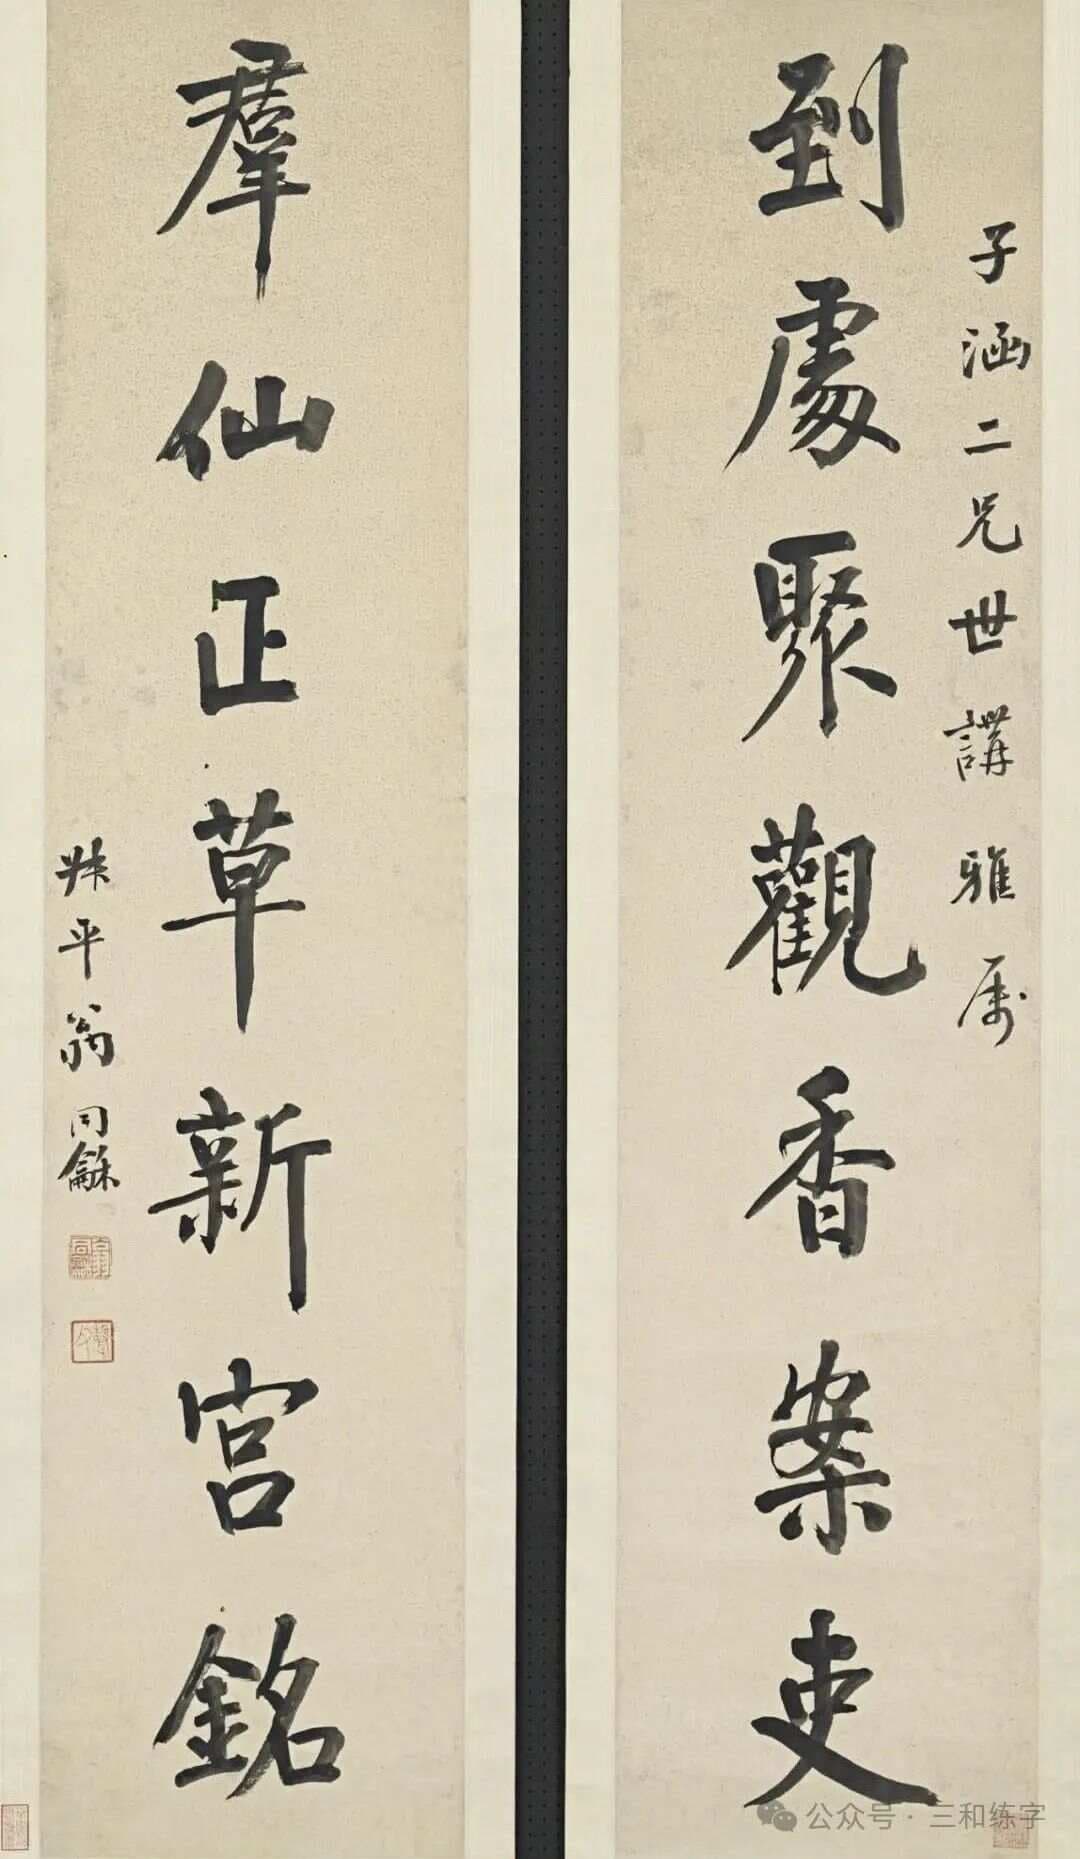 子涵二兄世講雅属
到處聚觀香案吏
羣仙正草新宮銘
叔平翁同龢
公众号·三和练字